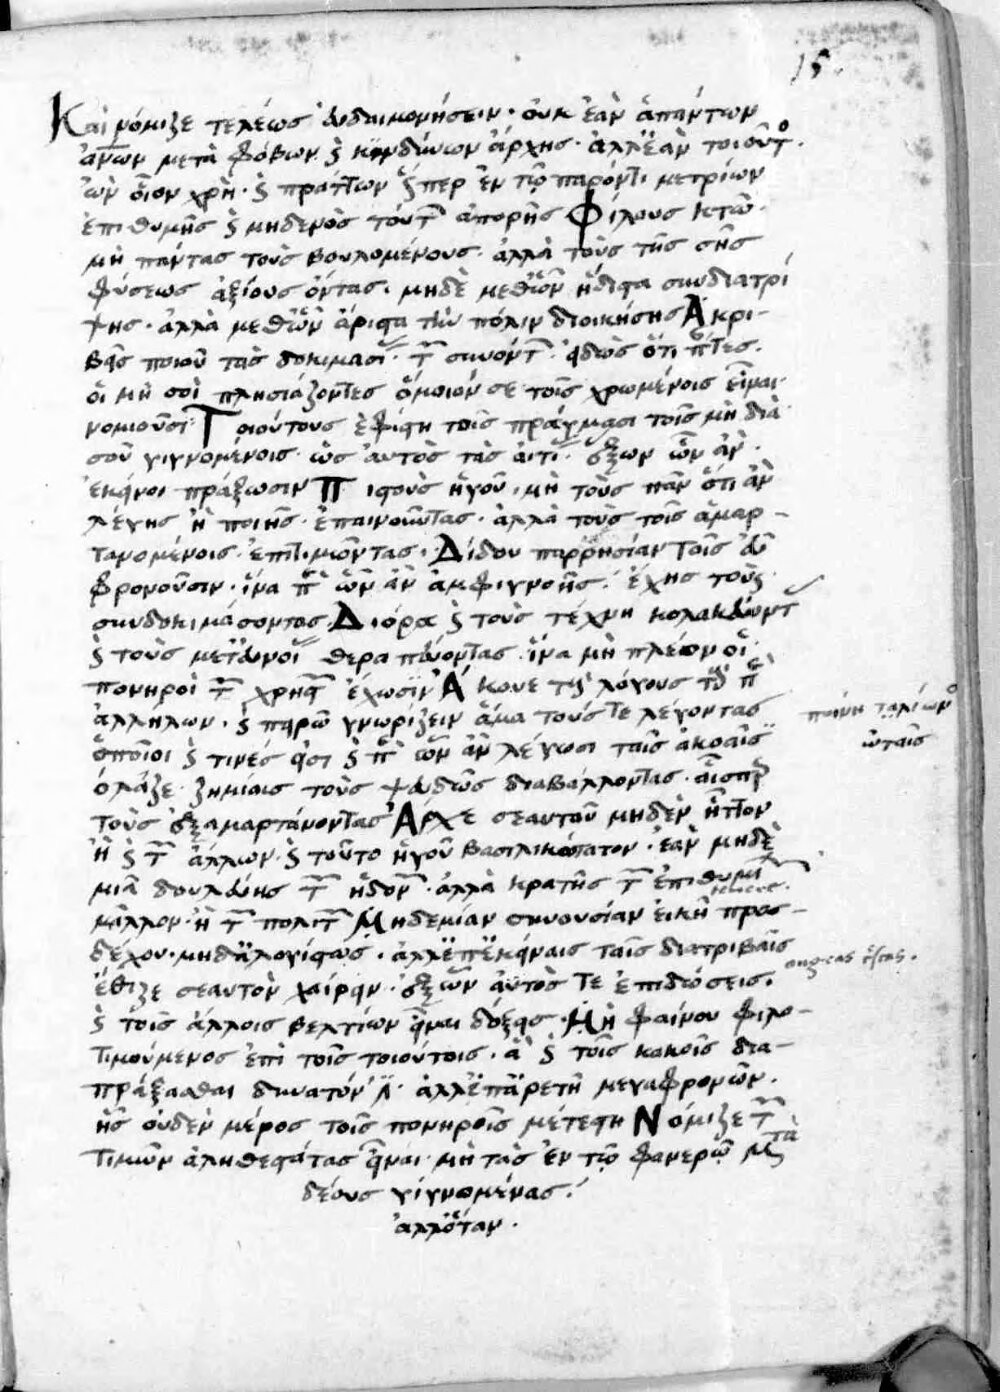 15.
Καὶ νόμιζε τελέως εὐδαιμονήσειν· οὐκ ἐὰν ἁπάντων
ἀνων μετὰ φόβων ϗ κινδύνων ἄρχης· ἀλλ' ἐὰν τοιοῦτο.
ὢν οἷον χρὴ· ϗ πράττων ὥσπερ ἐν τῷ παρόντι μετρίων
ἐπιθυμῆς ϗ μηδενὸς τούτ ἀπορῆς Φίλους κτῶ·
μὴ πάντας τοὺς βουλομένους· ἀλλὰ τοὺς τῆς σῆς
φύσεως ἀξίους ὄντας. μηδὲ μεθ' ὧν ἥδιστα συνδιατρί
ψης· ἀλλὰ μεθ' ὧν ἄριστα τὴν πόλιν διοικήσης Ἀκρι-
βεῖς ποιοῦ τὰς δοκιμασί τ συνόντ· εἰδὼς ὅτι πτες.
οἱ μή σοι πλησιάζοντες ὅμοιόν σε τοῖς χρωμένοις εἶναι
νομιοῦσι· Τοιούτους ἐφίστη τοῖς πράγμασι τοῖς μὴ διὰ
σοῦ γιγνομένοις· ὡς αὐτὸς τὰς αἰτί ἕξων ὧν ἂν·
ἐκεῖνοι πράξωσιν Πιστοὺς ἡγοῦ· μὴ τοὺς πᾶν ὅτι ἂν
λέγης ἢ ποιῆς· ἐπαινοῦντας· ἀλλὰ τοὺς τοῖς ἁμαρ-
τανομένοις· ἐπιτιμῶντας· Δίδου παρρησίαν τοῖς εὖ
φρονοῦσιν· ἵνα π ὧν ἂν ἀμφιγνοῆς· ἔχης τοὺς
συνδοκιμάσοντας Διόρα ϗ τοὺς τέχνη κολακεύοντ
ϗ τοὺς μετ' εὐνοί θεραπεύοντας· ἵνα μὴ πλέον οἱ
πονηροὶ τ χρηστ ἔχωσιν Ἄκουε τοὺς λόγους τοὺς π
ἀλλήλων· ϗ πειρῶ γνωρίζειν ἅμα τούς τε λέγοντας
ὁποῖοι ϗ τινές εἰσι ϗ π ὧν ἂν λέγωσι ταῖς ἀκοαῖς
όλαζε ζημίαις τοὺς ψευδῶς διαβάλλοντας· αἷσπερ
τοὺς ἐξαμαρτάνοντας Ἄρχε σεαυτοῦ μηδὲν ἧττον
ἢ ϗ τ ἄλλων· ϗ τοῦτο ἡγοῦ βασιλικώτατον· ἐὰν μηδὲ
μιᾶ δουλεύης τ ἡδον· ἀλλὰ κρατῆς τ ἐπιθυμι
μᾶλλον· ἢ τ πολιτ Μηδεμίαν συνουσίαν εἰκῆ προσ-
δέχου· μηδ' ἀλογίστως· ἀλλ' ἐπ' ἐκείναις ταῖς διατριβαῖς
ἔθιζε σεαυτὸν χαίρειν· ἐξ ὧν αὐτός τε ἐπιδώσεις.
ϗ τοῖς ἄλλοις βελτίων εἶναι δόξεις· Μὴ φαίνου φιλο-
τιμούμενος ἐπὶ τοῖς τοιούτοις· ἃ ϗ τοῖς κακοῖς δια-
πράξασθαι δυνατόν· ἀλλ' ἐπ' ἀρετῆ μεγαφρονῶν.
ἧς οὐδὲν μέρος τοῖς πονηροῖς μέτεστη Νόμιζε τ
τιμῶν ἀληθεστάτας εἶναι· μὴ τὰς ἐν τῷ φανερῷ μετὰ
δέους γιγνομένας·
ἀλλ' ὅταν.